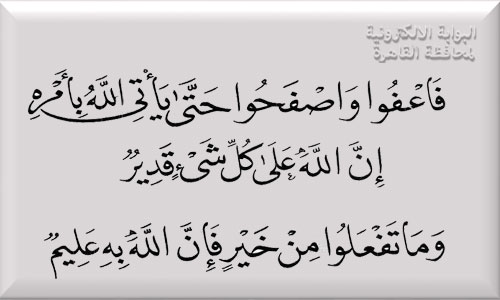 البوابة الالكترونية
لمحافظة القاهرة
فَاعْفُوا وَاصْفَحُوا حَتَّىٰ يَأْتِىَ اللَّهُ بِأَمْرِهِ
إِنَّ اللَّهَ عَلَىٰ كُلِّ شَىْءٍ قَدِيرٌ
وَمَا تَفْعَلُوا مِنْ خَيْرٍ فَإِنَّ اللَّهَ بِهِ عَلِيمٌ